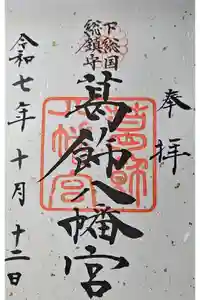 奉拝
下総国
総鎮守
葛飾八幡宮
令和七年十月十二日